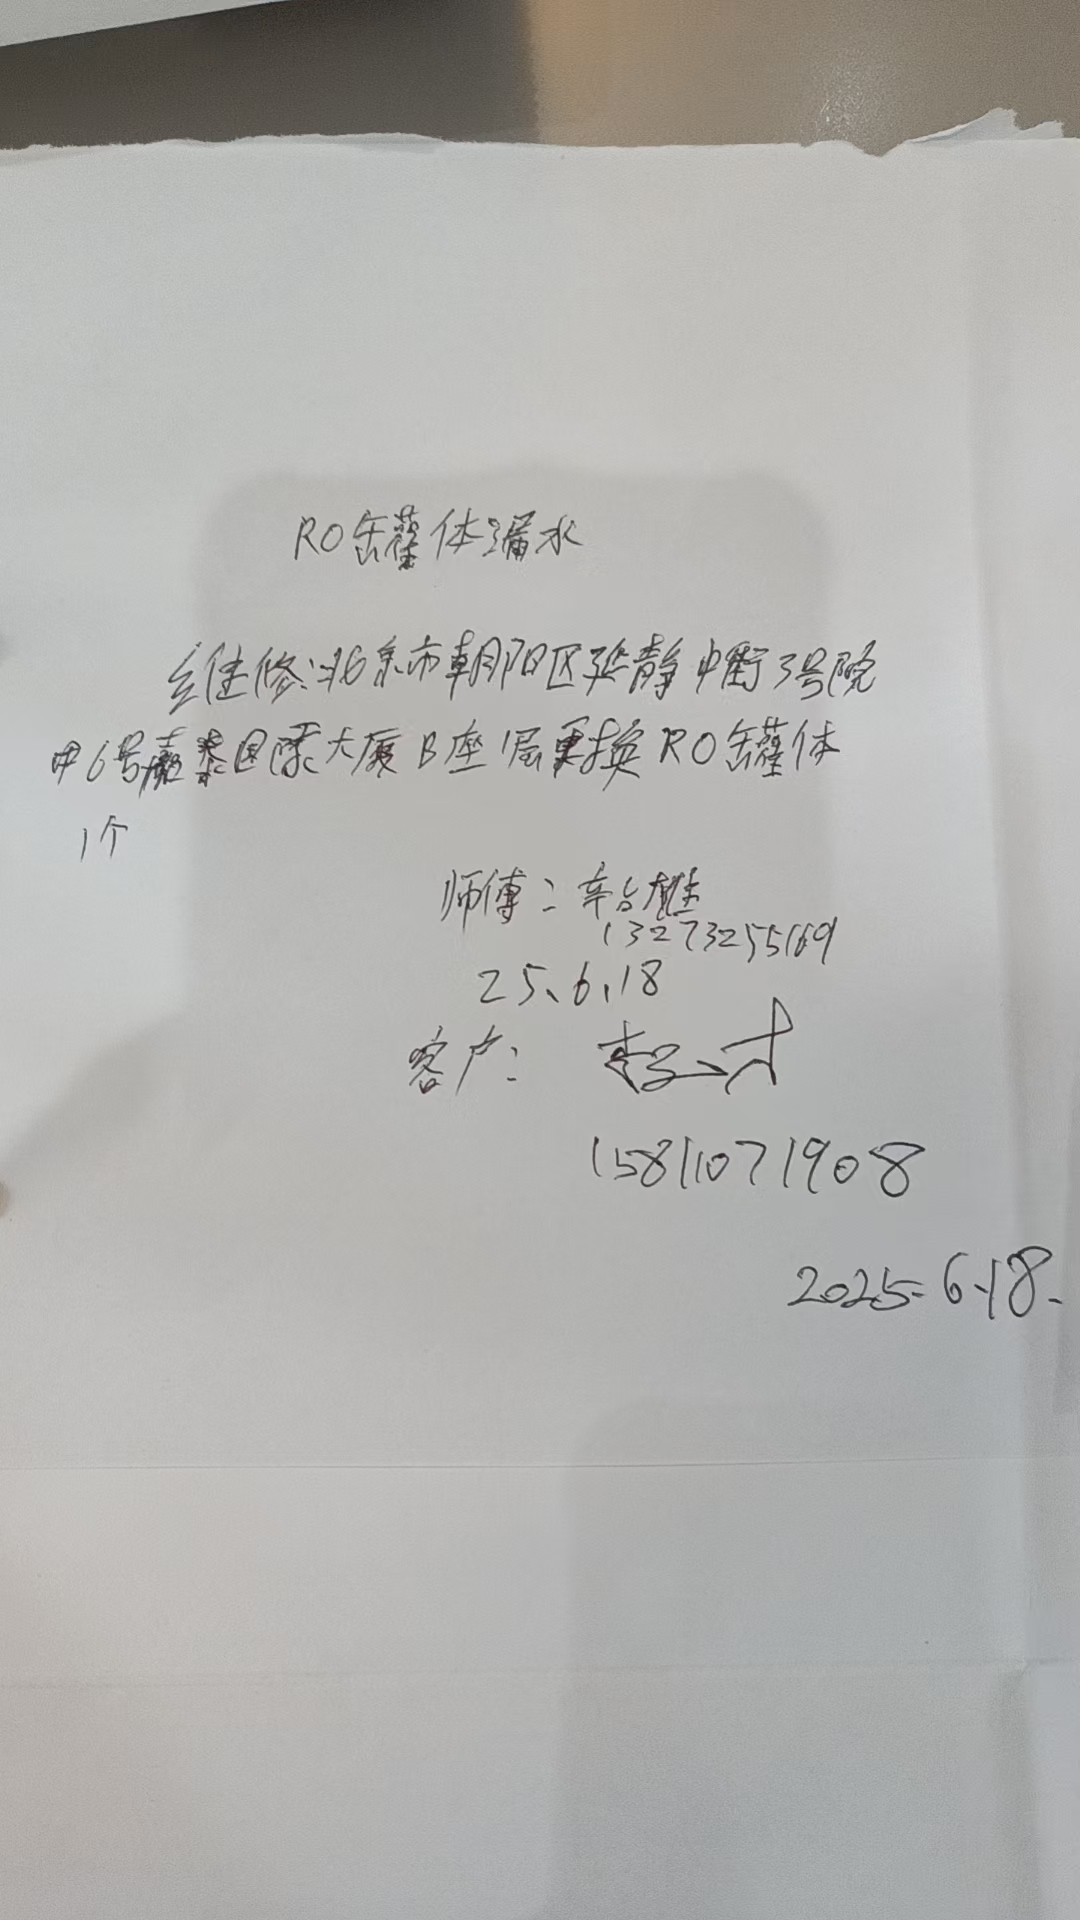 RO罐体漏水
维修:北京市朝阳区延静中街3号院
甲6号嘉泰国际大厦B座1层更换RO罐体
1个
师傅:
13273255169
25.6.18
客户: 李
15811071908
2025.6.18.